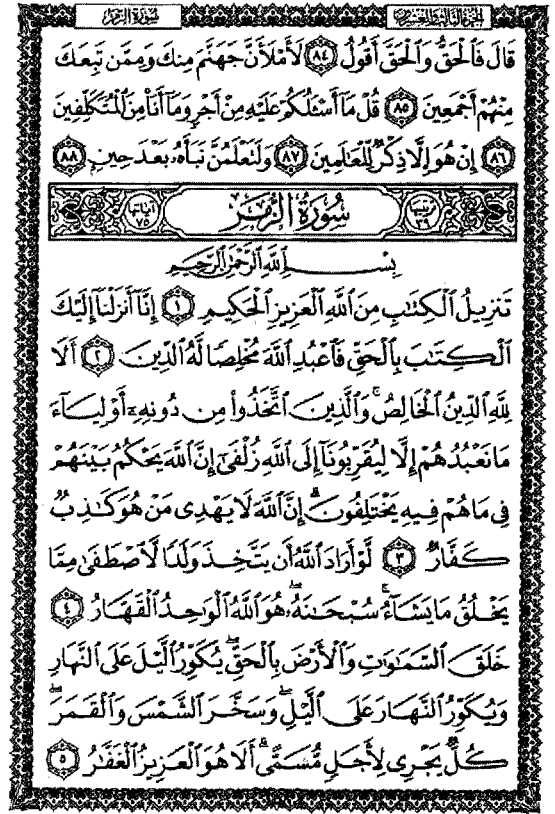 سورة الزمر
الجزء الثالث والعشرون
قَالَ فَٱلْحَقُّ وَٱلْحَقَّ أَقُولُ ٨٤ لَأَمْلَأَنَّ جَهَنَّمَ مِنكَ وَمِمَّن تَبِعَكَ
مِنْهُمْ أَجْمَعِينَ ٨٥ قُلْ مَآ أَسْـَٔلُكُمْ عَلَيْهِ مِنْ أَجْرٍ وَمَآ أَنَا۠ مِنَ ٱلْمُتَكَلِّفِينَ
٨٦ إِنْ هُوَ إِلَّا ذِكْرٌ لِّلْعَـٰلَمِينَ ٨٧ وَلَتَعْلَمُنَّ نَبَأَهُۥ بَعْدَ حِينٍۭ ٨٨
ترتيبها ٣٩ سُورَةُ الزُّمَرِ آياتها ٧٥
بِسْمِ ٱللَّهِ ٱلرَّحْمَـٰنِ ٱلرَّحِيمِ
تَنزِيلُ ٱلْكِتَـٰبِ مِنَ ٱللَّهِ ٱلْعَزِيزِ ٱلْحَكِيمِ ١ إِنَّآ أَنزَلْنَآ إِلَيْكَ
ٱلْكِتَـٰبَ بِٱلْحَقِّ فَٱعْبُدِ ٱللَّهَ مُخْلِصًا لَّهُ ٱلدِّينَ ٢ أَلَا
لِلَّهِ ٱلدِّينُ ٱلْخَالِصُ ۚ وَٱلَّذِينَ ٱتَّخَذُوا۟ مِن دُونِهِۦٓ أَوْلِيَآءَ
مَا نَعْبُدُهُمْ إِلَّا لِيُقَرِّبُونَآ إِلَى ٱللَّهِ زُلْفَىٰٓ إِنَّ ٱللَّهَ يَحْكُمُ بَيْنَهُمْ
فِى مَا هُمْ فِيهِ يَخْتَلِفُونَ ۗ إِنَّ ٱللَّهَ لَا يَهْدِى مَنْ هُوَ كَـٰذِبٌ
كَفَّارٌ ٣ لَّوْ أَرَادَ ٱللَّهُ أَن يَتَّخِذَ وَلَدًا لَّٱصْطَفَىٰ مِمَّا
يَخْلُقُ مَا يَشَآءُ ۚ سُبْحَـٰنَهُۥ ۖ هُوَ ٱللَّهُ ٱلْوَٰحِدُ ٱلْقَهَّارُ ٤
خَلَقَ ٱلسَّمَـٰوَٰتِ وَٱلْأَرْضَ بِٱلْحَقِّ ۖ يُكَوِّرُ ٱلَّيْلَ عَلَى ٱلنَّهَارِ
وَيُكَوِّرُ ٱلنَّهَارَ عَلَى ٱلَّيْلِ ۖ وَسَخَّرَ ٱلشَّمْسَ وَٱلْقَمَرَ ۖ
كُلٌّ يَجْرِى لِأَجَلٍ مُّسَمًّى ۗ أَلَا هُوَ ٱلْعَزِيزُ ٱلْغَفَّـٰرُ ٥